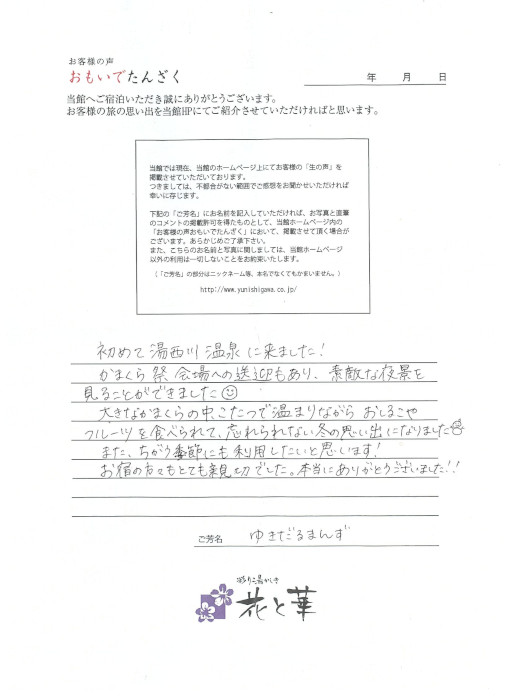 お客様の声
おもいでたんざく
年 月 日
当館へご宿泊いただき誠にありがとうございます。
お客様の旅の思い出を当館HPにてご紹介させていただければと思います。
当館では現在、当館のホームページ上にてお客様の『生の声』を
掲載させていただいております。
つきましては、不都合がない範囲でご感想をお聞かせいただければ
幸いに存じます。
下記の「ご芳名」にお名前を記入していただければ、お写真と直筆
のコメントの掲載許可を得たものとして、当館ホームページ内の
「お客様の声おもいでたんざく」において、掲載させて頂く場合が
ございます。あらかじめご了承下さい。
また、こちらのお名前と写真に関しましては、当館ホームページ
以外の利用は一切しないことをお約束いたします。
（「ご芳名」の部分はニックネーム等、本名でなくてもかまいません。）
http://www.yunishigawa.co.jp/
初めて湯西川温泉に来ました!
かまくら祭 会場への送迎もあり、素敵な夜景を
見ることができました☺
大きなかまくらの中、こたつで温まりながら おしるこや
フルーツを食べられて、忘れられない冬の思い出になりました
また、ちがう季節にも利用したいと思います!
お宿の方々もとても親切でした。本当にありがとうございました!!
ご芳名 ゆきだるまんず
花と華